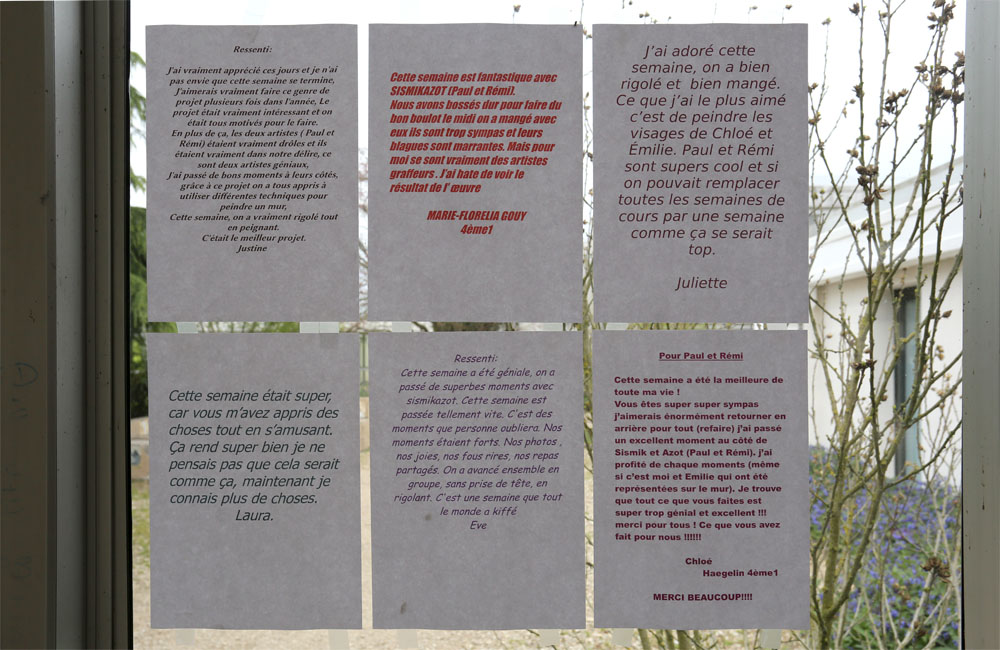 Ressenti:
J'ai vraiment apprécié ces jours et je n'ai
pas envie que cette semaine se termine,
J'aimerais vraiment faire ce genre de
projet plusieurs fois dans l'année, Le
projet était vraiment intéressant et on
était tous motivés pour le faire.
En plus de ça, les deux artistes ( Paul et
Rémi) étaient vraiment drôles et ils
étaient vraiment dans notre délire, ce
sont deux artistes géniaux,
J'ai passé de bons moments à leurs côtés,
grâce à ce projet on a tous appris à
utiliser différentes techniques pour
peindre un mur,
Cette semaine, on a vraiment rigolé tout
en peignant.
C'était le meilleur projet.
Justine
Cette semaine est fantastique avec
SISMIKAZOT (Paul et Rémi).
Nous avons bossés dur pour faire du
bon boulot le midi on a mangé avec
eux ils sont trop sympas et leurs
blagues sont marrantes. Mais pour
moi se sont vraiment des artistes
graffeurs . J'ai hate de voir le
résultat de l' œuvre
MARIE-FLORELIA GOUY
4ème1
J'ai adoré cette
semaine, on a bien
rigolé et bien mangé.
Ce que j'ai le plus aimé
c'est de peindre les
visages de Chloé et
Émilie. Paul et Rémi
sont supers cool et si
on pouvait remplacer
toutes les semaines de
cours par une semaine
comme ça se serait
top.
Juliette
Cette semaine était super,
car vous m'avez appris des
choses tout en s'amusant.
Ça rend super bien je ne
pensais pas que cela serait
comme ça, maintenant je
connais plus de choses.
Laura.
Ressenti:
Cette semaine a été géniale, on a
passé de superbes moments avec
sismikazot. Cette semaine est
passée tellement vite. C'est des
moments que personne oubliera. Nos
moments étaient forts. Nos photos ,
nos joies, nos fous rires, nos repas
partagés. On a avancé ensemble en
groupe, sans prise de tête, en
rigolant. C'est une semaine que tout
le monde a kiffé
Eve
Pour Paul et Rémi
Cette semaine a été la meilleure de
toute ma vie !
Vous êtes super super sympas
j'aimerais énormément retourner en
arrière pour tout (refaire) j'ai passé
un excellent moment au côté de
Sismik et Azot (Paul et Rémi). j'ai
profité de chaque moments (même
si c'est moi et Emilie qui ont été
représentées sur le mur). Je trouve
que tout ce que vous faites est
super trop génial et excellent !!!
merci pour tous ! Ce que vous avez
fait pour nous !!!!!!
Chloé
Haegelin 4ème1
MERCI BEAUCOUP!!!!